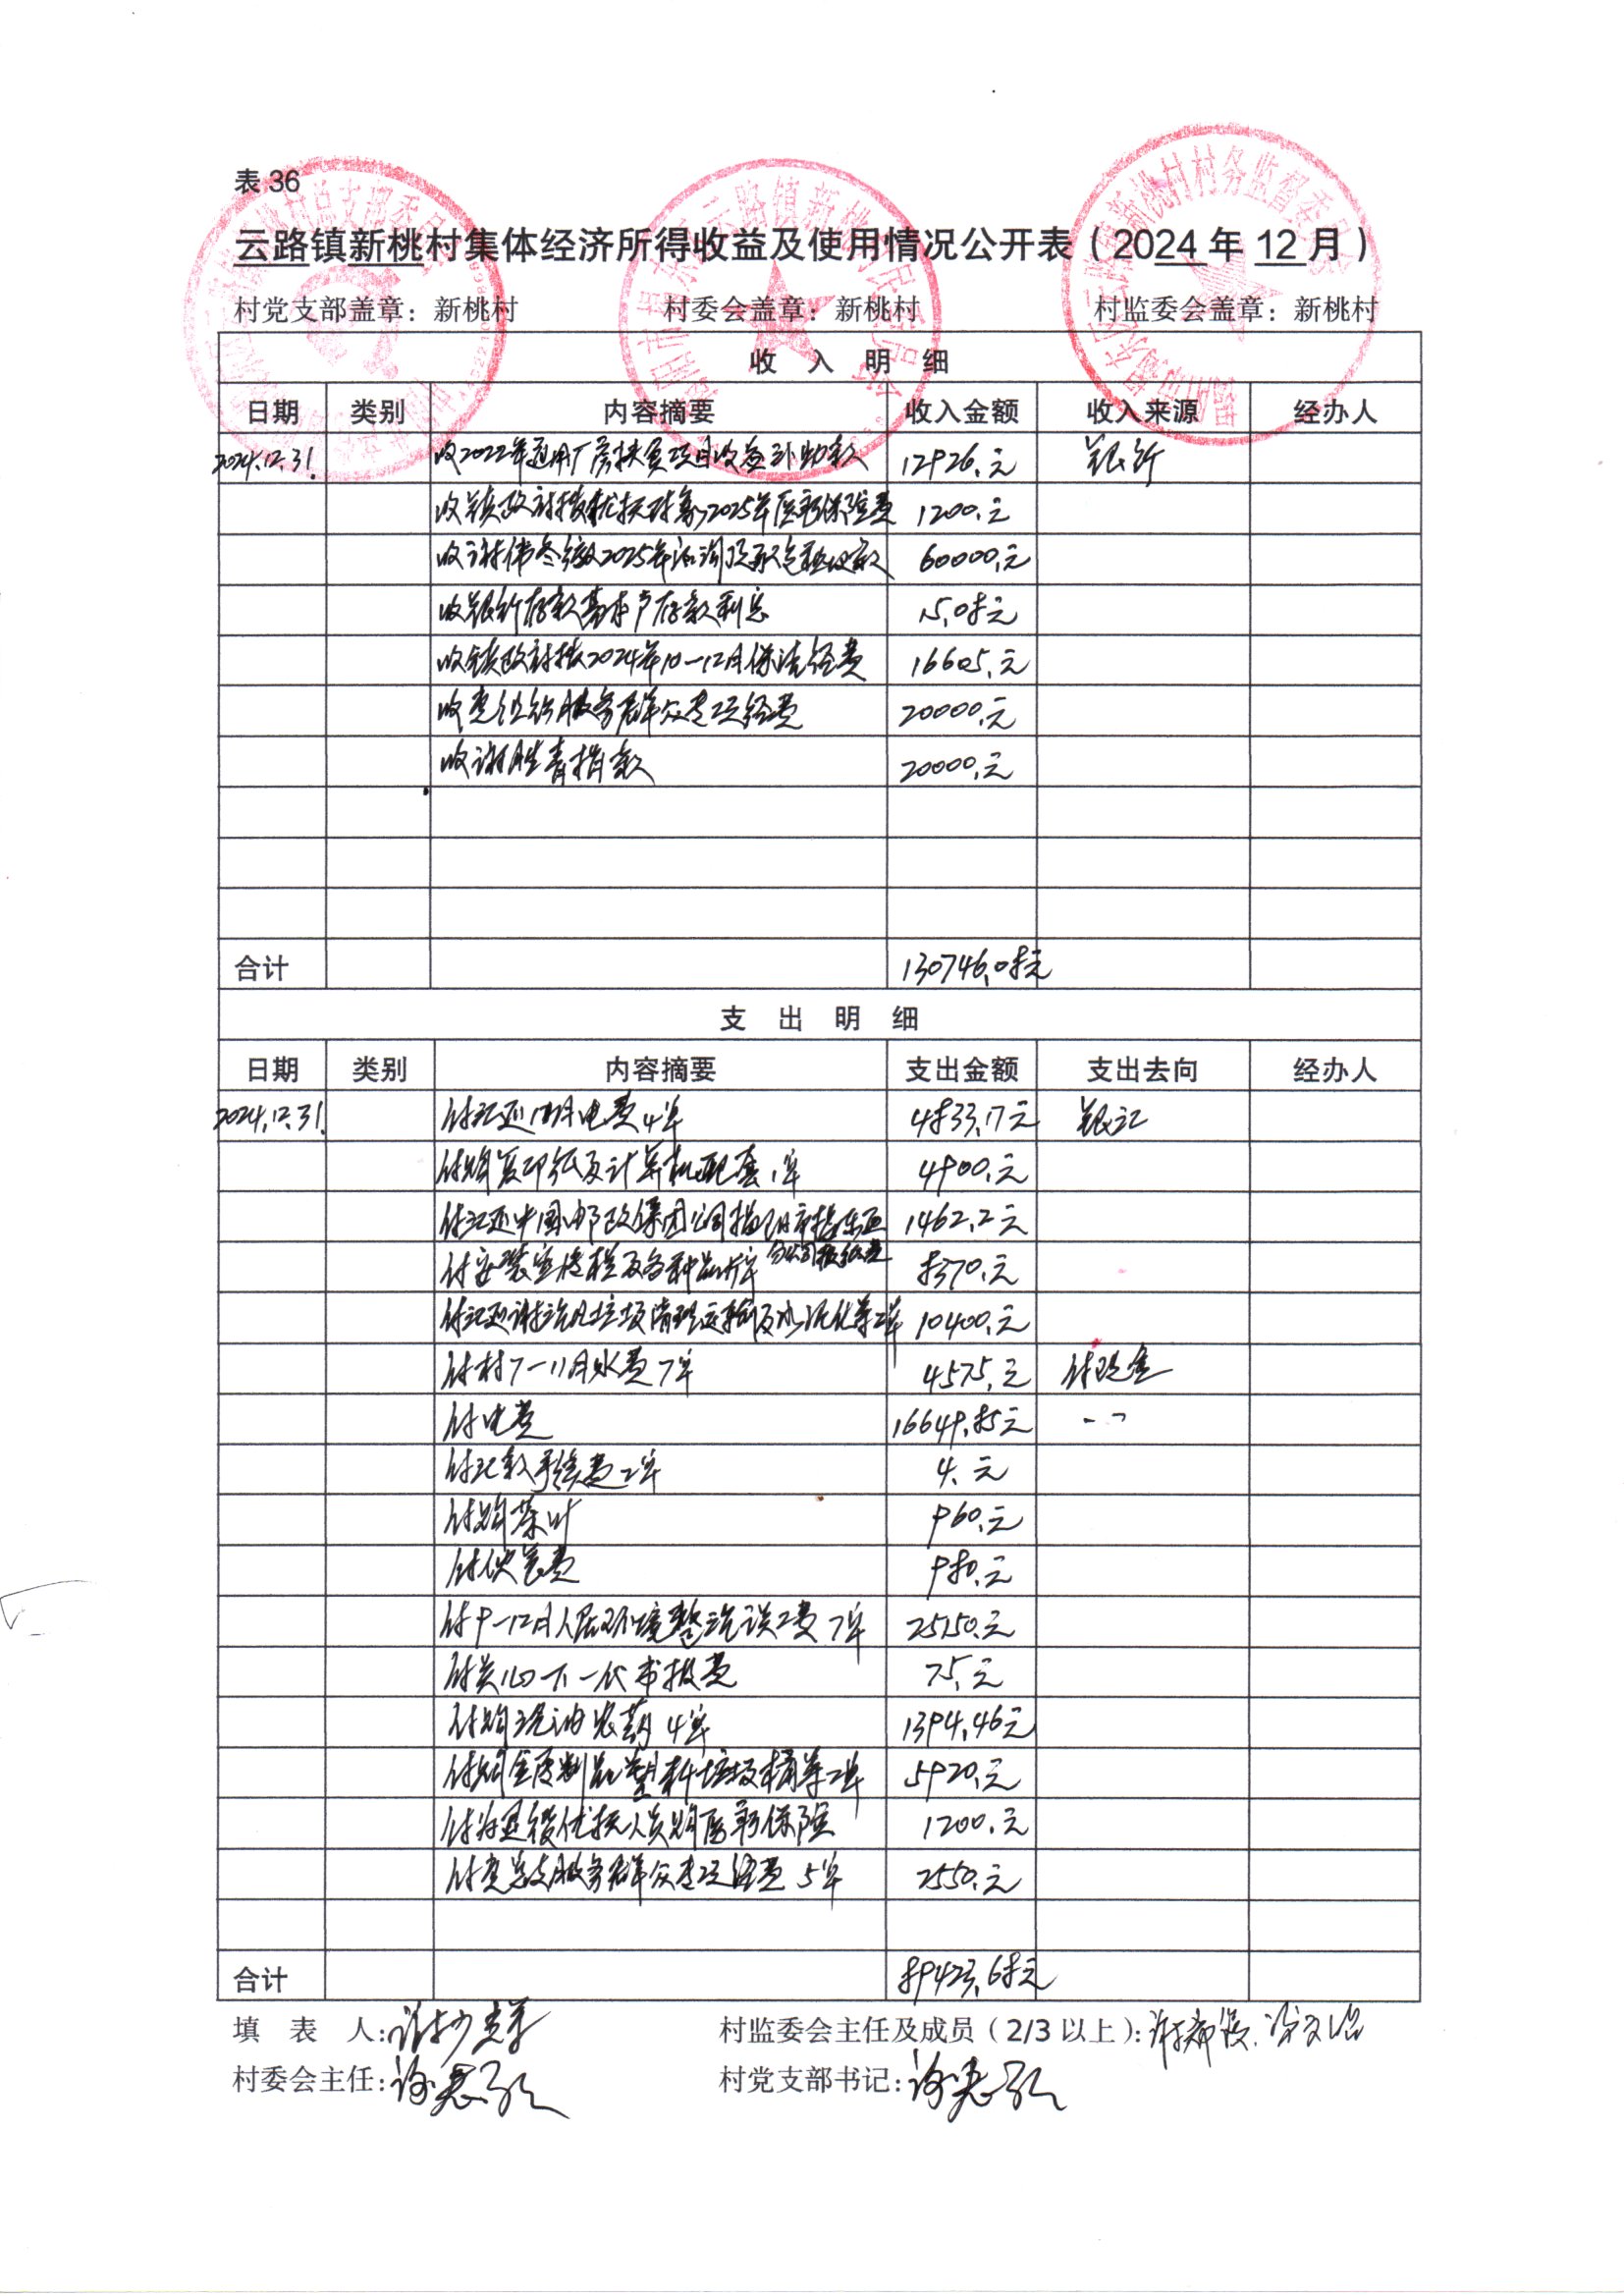 表 36
云路镇新桃村集体经济所得收益及使用情况公开表（2024 年 12 月）
村党支部盖章：新桃村 村委会盖章：新桃村 村监委会盖章：新桃村
收 入 明 细
日期 类别 内容摘要 收入金额 收入来源 经办人
2024.12.31 收2022年通用厂房扶贫项目收益补助款 12926.元 银行
收镇政府拨优抚对象2025年医疗保险费 1200.元
收谢伟冬缴2025年 承包 款 60000.元
收银行存款基本户存款利息 15.08元
收镇政府拨2024年10-12月保洁经费 16605.元
收党组织服务群众专项经费 20000.元
收谢胜青捐款 20000.元
合计 130746.08元
支 出 明 细
日期 类别 内容摘要 支出金额 支出去向 经办人
2024.12.31. 付汇还 月电费4单 4833.17元 银汇
付购复印纸及计算机配套1单 4900.元
付汇还中国邮政集团公司揭阳市揭东区分公司报纸费 1462.2元
付安装宣传栏及各种 8370.元
付汇还谢 垃圾清理运输及 等2单 10400.元
付村7-11月水费7单 4575.元 付现金
付电费 16649.85元 -〃-
付汇款手续费2单 4.元
付购茶叶 960.元
付伙食费 980.元
付9-12月人居环境整治误工费7单 25150.元
付关心下一代书报费 75.元
付购汽油农药4单 1394.46元
付购金属制品塑料垃圾桶等2单 5920.元
付为退役优抚人员购医疗保险 1200.元
付党总支服务群众专项经费5单 2550.元
合计 89423.68元
填 表 人： 村监委会主任及成员（2/3 以上）：
村委会主任： 村党支部书记：